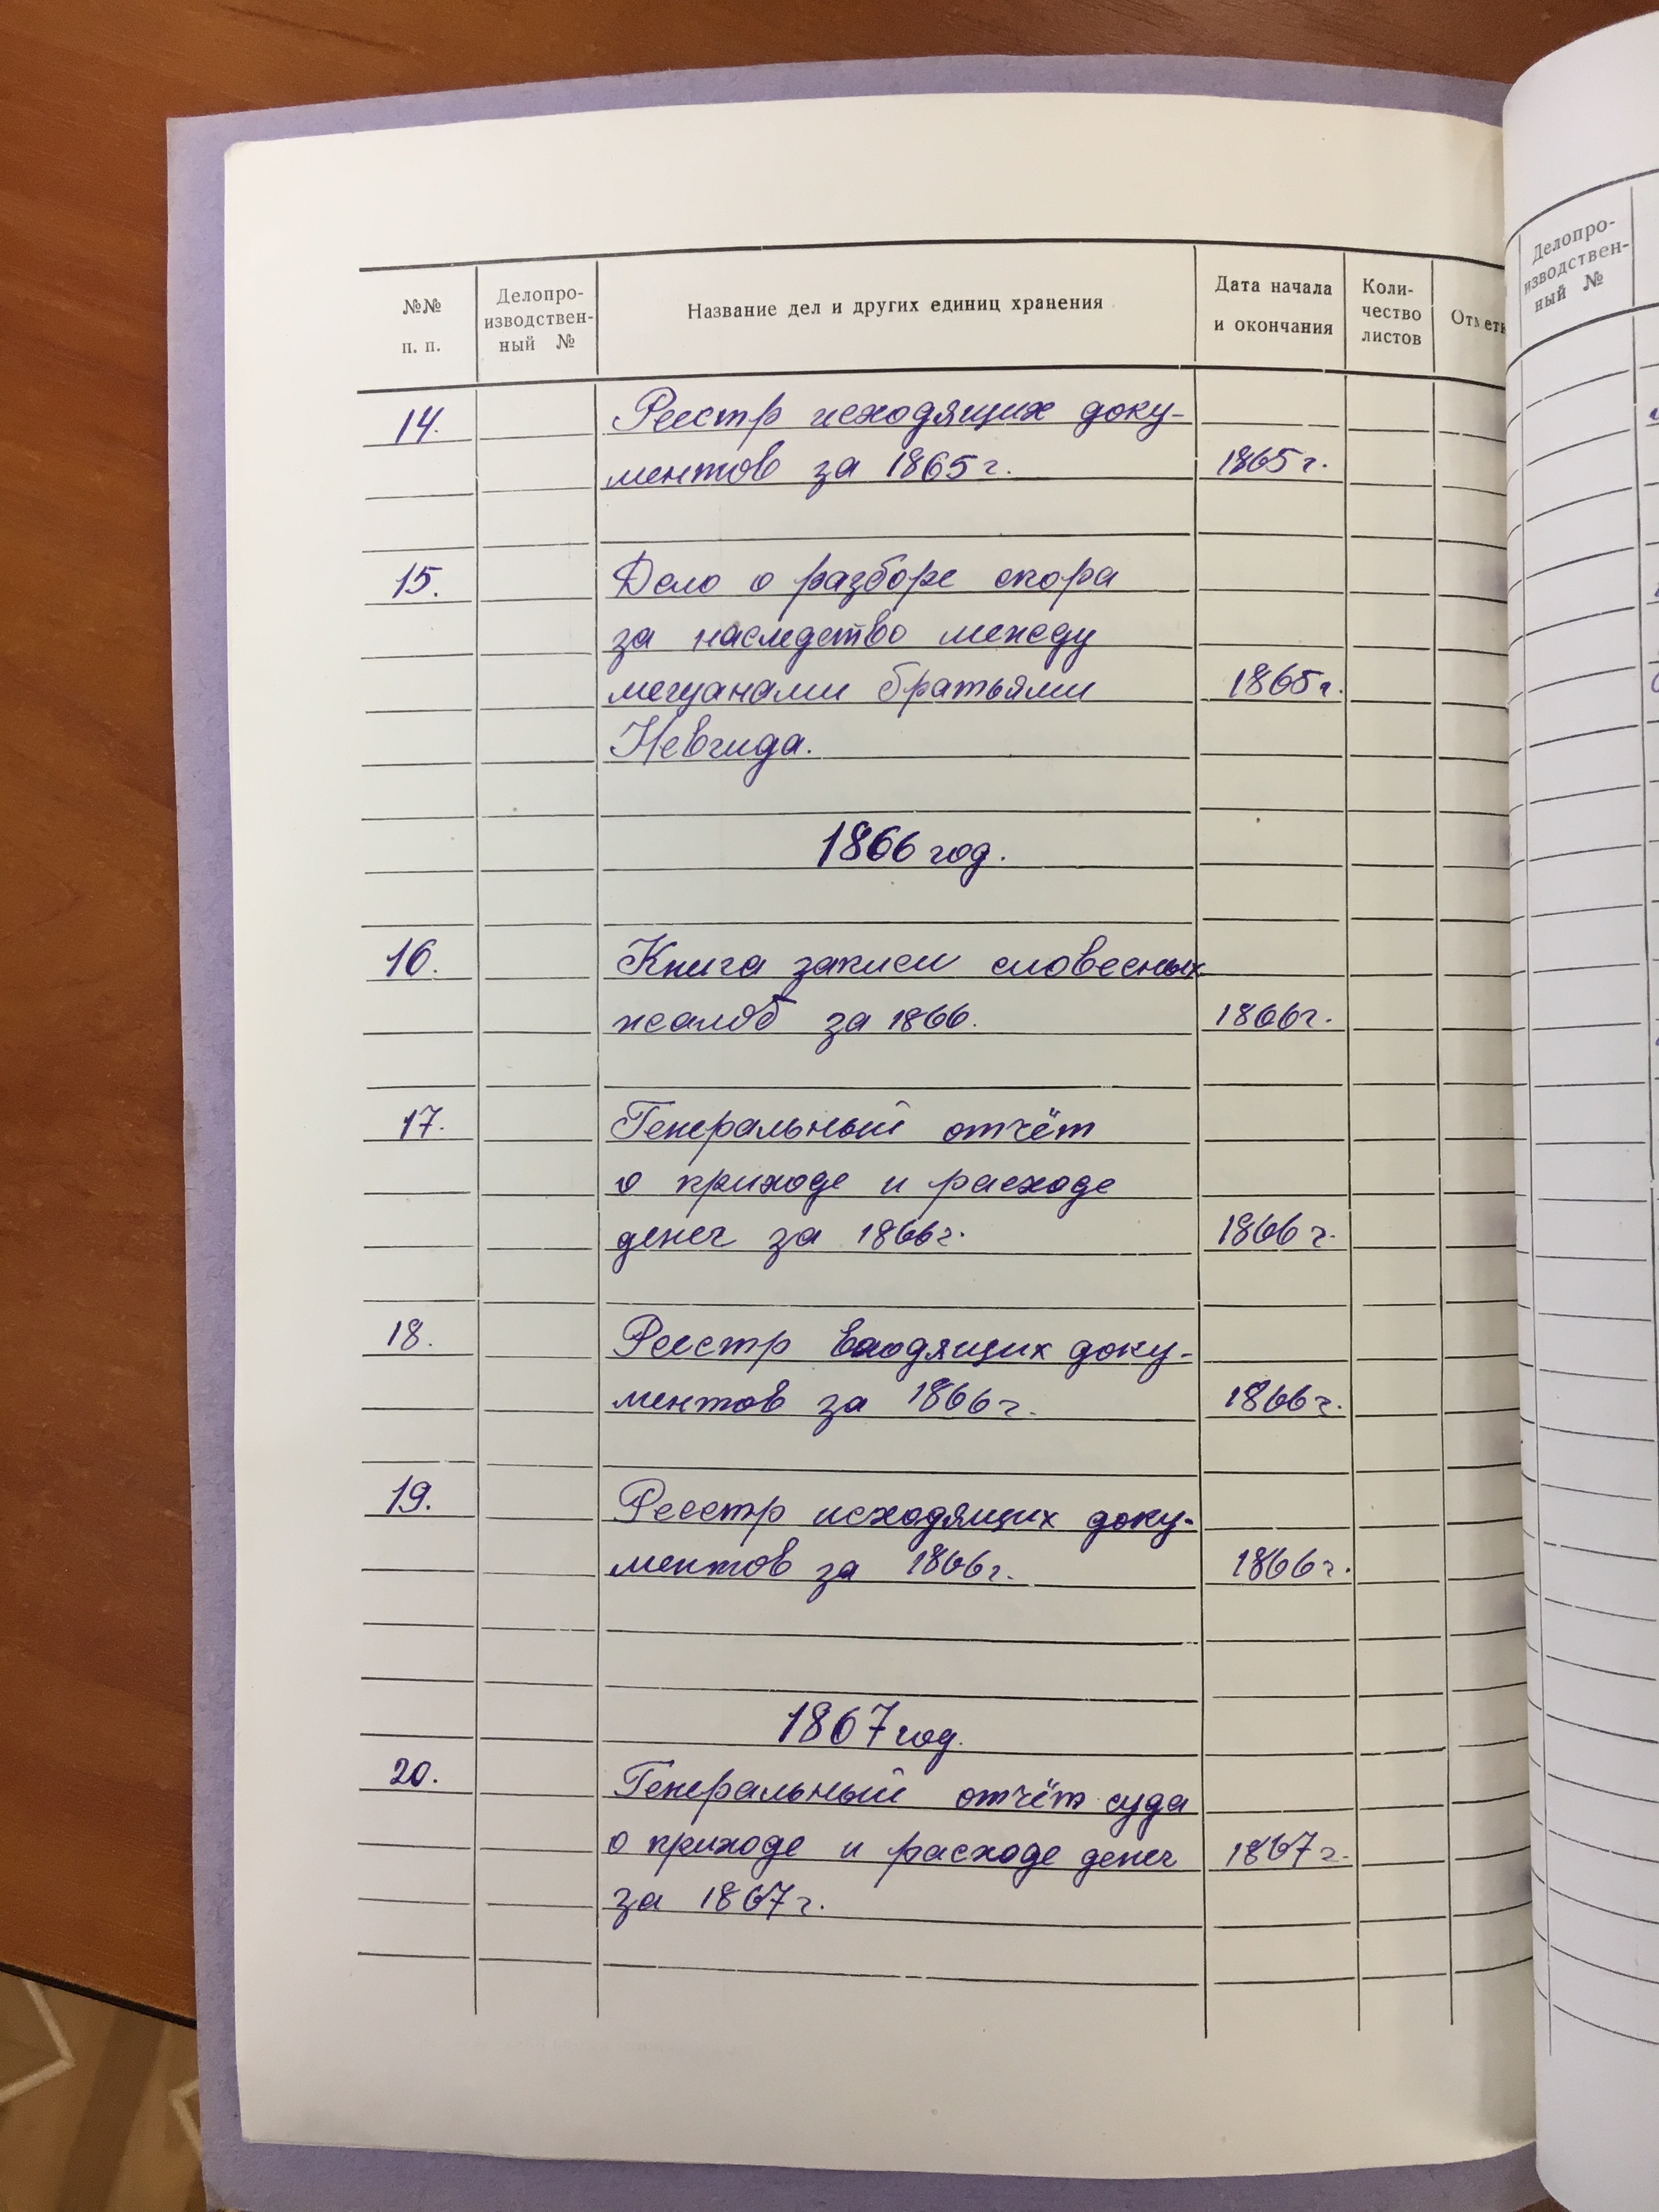 №№ п. п.
Делопро-
изводствен-
ный №
Название дел и других единиц хранения
Дата начала
и окончания
Коли-
чество
листов
Отметк
14. Реестр исходящих доку-
ментов за 1865 г. 1865 г.
15. Дело о разборе спора
за наследство между
мещанами братьями 1865 г.
Невгида.
1866 год.
16. Книга записи словесных
жалоб за 1866. 1866 г.
17. Генеральный отчёт
о приходе и расходе
денег за 1866 г. 1866 г.
18. Реестр входящих доку-
ментов за 1866 г. 1866 г.
19. Реестр исходящих доку-
ментов за 1866 г. 1866 г.
1867 год.
20. Генеральный отчёт суда
о приходе и расходе денег 1867 г.
за 1867 г.
Делопро-
изводствен-
ный №